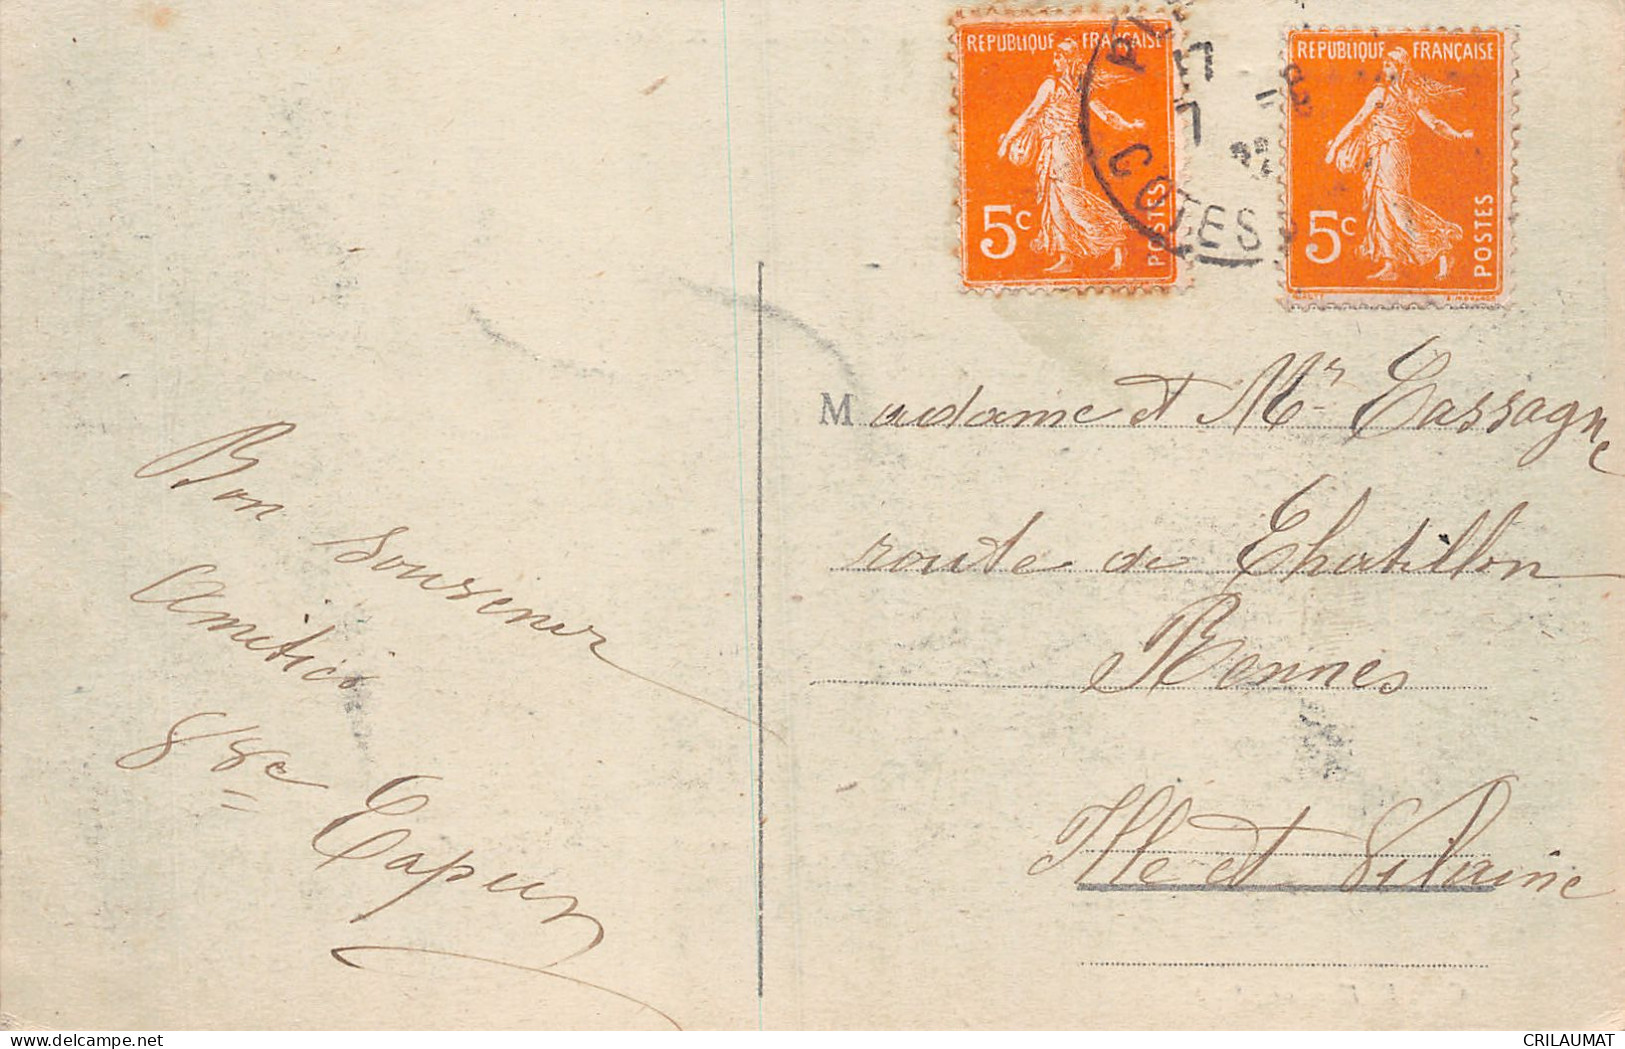 REPUBLIQUE FRANÇAISE
5c
POSTES
REPUBLIQUE FRANÇAISE
5c
POSTES
17
7
COTES
Madame et Mr Cassagne
route de Chatillon
Rennes
Ille et Vilaine
Bon souvenir
Amitiés
delcampe.net
CRILAUMAT